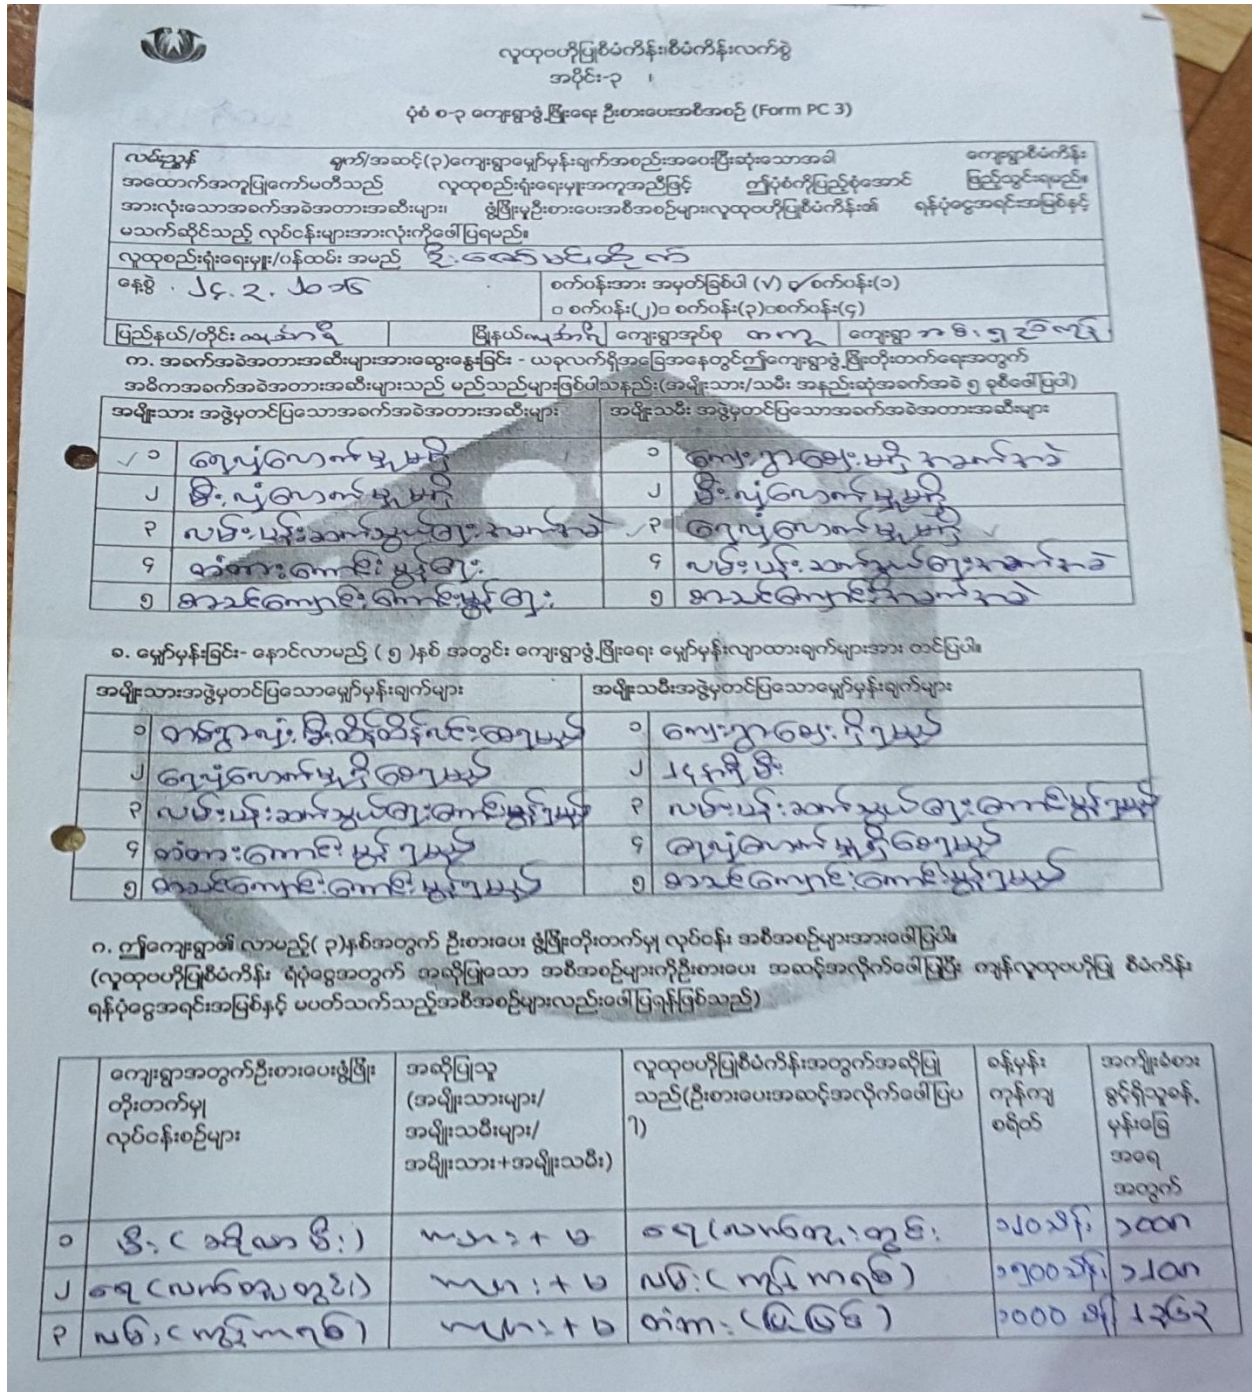 လူထုဗဟိုပြုစီမံကိန်း၊စီမံကိန်းလက်စွဲ
အပိုင်း-၃
ပုံစံ စ-၃ ကျေးရွာဖွံ့ဖြိုးရေး ဦးစားပေးအစီအစဉ် (Form PC 3)
လမ်းညွှန် ချက်/အဆင့်(၃)ကျေးရွာမျှော်မှန်းချက်အစည်းအဝေးပြီးဆုံးသောအခါ ကျေးရွာစီမံကိန်း
အထောက်အကူပြုကော်မတီသည် လူထုစည်းရုံးရေးမှူးအကူအညီဖြင့် ဤပုံစံကိုပြည့်စုံအောင် ဖြည့်သွင်းရမည်။
အားလုံးသောအခက်အခဲအတားအဆီးများ၊ ဖွံ့ဖြိုးမှုဦးစားပေးအစီအစဉ်များ၊လူထုဗဟိုပြုစီမံကိန်း၏ ရန်ပုံငွေအရင်းအမြစ်နှင့်
မသက်ဆိုင်သည့် လုပ်ငန်းများအားလုံးကိုဖေါ်ပြရမည်။
လူထုစည်းရုံးရေးမှူး/ဝန်ထမ်း အမည် ဦးဇော်မင်းထိုက်
နေ့စွဲ . ၂၄.၃.၂၀၁၆ စက်ဝန်းအား အမှတ်ခြစ်ပါ (√) စက်ဝန်း(၁)
□ စက်ဝန်း(၂)□ စက်ဝန်း(၃)□စက်ဝန်း(၄)
ပြည်နယ်/တိုင်း တနင်္သာရီ မြို့နယ် တနင်္သာရီ ကျေးရွာအုပ်စု တကူ ကျေးရွာ
က. အခက်အခဲအတားအဆီးများအားဆွေးနွေးခြင်း - ယခုလက်ရှိအခြေအနေတွင်ဤကျေးရွာဖွံ့ဖြိုးတိုးတက်ရေးအတွက်
အဓိကအခက်အခဲအတားအဆီးများသည် မည်သည်များဖြစ်ပါသနည်း(အမျိုးသား/သမီး အနည်းဆုံးအခက်အခဲ ၅ ခုစီဖေါ်ပြပါ)
အမျိုးသား အဖွဲ့မှတင်ပြသောအခက်အခဲအတားအဆီးများ အမျိုးသမီး အဖွဲ့မှတင်ပြသောအခက်အခဲအတားအဆီးများ
၁ ရေလုံလောက်မှုမရှိ ၁ ကျေးရွာဈေးမရှိအခက်အခဲ
၂ မီးလုံလောက်မှုမရှိ ၂ မီးလုံလောက်မှုမရှိ
၃ လမ်းပန်းဆက်သွယ်ရေးအခက်အခဲ ၃ ရေလုံလောက်မှုမရှိ
၄ တံတားကောင်းမွန်ရေး ၄ လမ်းပန်းဆက်သွယ်ရေးအခက်အခဲ
၅ စာသင်ကျောင်းကောင်းမွန်ရေး ၅ စာသင်ကျောင်းအခက်အခဲ
ခ. မျှော်မှန်းခြင်း- နောင်လာမည့် ( ၅ )နှစ် အတွင်း ကျေးရွာဖွံ့ဖြိုးရေး မျှော်မှန်းလျာထားချက်များအား တင်ပြပါ။
အမျိုးသားအဖွဲ့မှတင်ပြသောမျှော်မှန်းချက်များ အမျိုးသမီးအဖွဲ့မှတင်ပြသောမျှော်မှန်းချက်များ
၁ တစ်ရွာလုံးမီးထိန်ထိန်လင်းစေရမည် ၁ ကျေးရွာဈေးရှိရမည်
၂ ရေလုံလောက်မှုရှိစေရမည် ၂ ၂၄နာရီမီး
၃ လမ်းပန်းဆက်သွယ်ရေးကောင်းမွန်ရမည် ၃ လမ်းပန်းဆက်သွယ်ရေးကောင်းမွန်ရမည်
၄ တံတားကောင်းမွန်ရမည် ၄ ရေလုံလောက်မှုရှိစေရမည်
၅ စာသင်ကျောင်းကောင်းမွန်ရမည် ၅ စာသင်ကျောင်းကောင်းမွန်ရမည်
ဂ. ဤကျေးရွာ၏ လာမည့်( ၃)နှစ်အတွက် ဦးစားပေး ဖွံ့ဖြိုးတိုးတက်မှု လုပ်ငန်း အစီအစဉ်များအားဖေါ်ပြပါ။
(လူထုဗဟိုပြုစီမံကိန်း ရံပုံငွေအတွက် အဆိုပြုသော အစီအစဉ်များကိုဦးစားပေး အဆင့်အလိုက်ဖေါ်ပြပြီး ကျန်လူထုဗဟိုပြု စီမံကိန်း
ရန်ပုံငွေအရင်းအမြစ်နှင့် မပတ်သက်သည့်အစီအစဉ်များလည်းဖေါ်ပြရန်ဖြစ်သည်)
ကျေးရွာအတွက်ဦးစားပေးဖွံ့ဖြိုး
တိုးတက်မှု
လုပ်ငန်းစဉ်များ
အဆိုပြုသူ
(အမျိုးသားများ/
အမျိုးသမီးများ/
အမျိုးသား+အမျိုးသမီး)
လူထုဗဟိုပြုစီမံကိန်းအတွက်အဆိုပြု
သည်(ဦးစားပေးအဆင့်အလိုက်ဖေါ်ပြပ
ါ)
ခန့်မှန်း
ကုန်ကျ
စရိတ်
အကျိုးခံစား
ခွင့်ရှိသူခန့်
မှန်းခြေ
အရေ
အတွက်
၁ မီး (ဆိုလာမီး) ကျား + မ ရေ (လက်တူးတွင်း ၁၂၀သိန်း
၂ ရေ (လက်တူးတွင်း) ကျား + မ လမ်း (ကွန်ကရစ်) ၁၅၀၀သိန်း
၃ လမ်း (ကွန်ကရစ်) ကျား + မ တံတား ၁၀၀၀ သိန်း